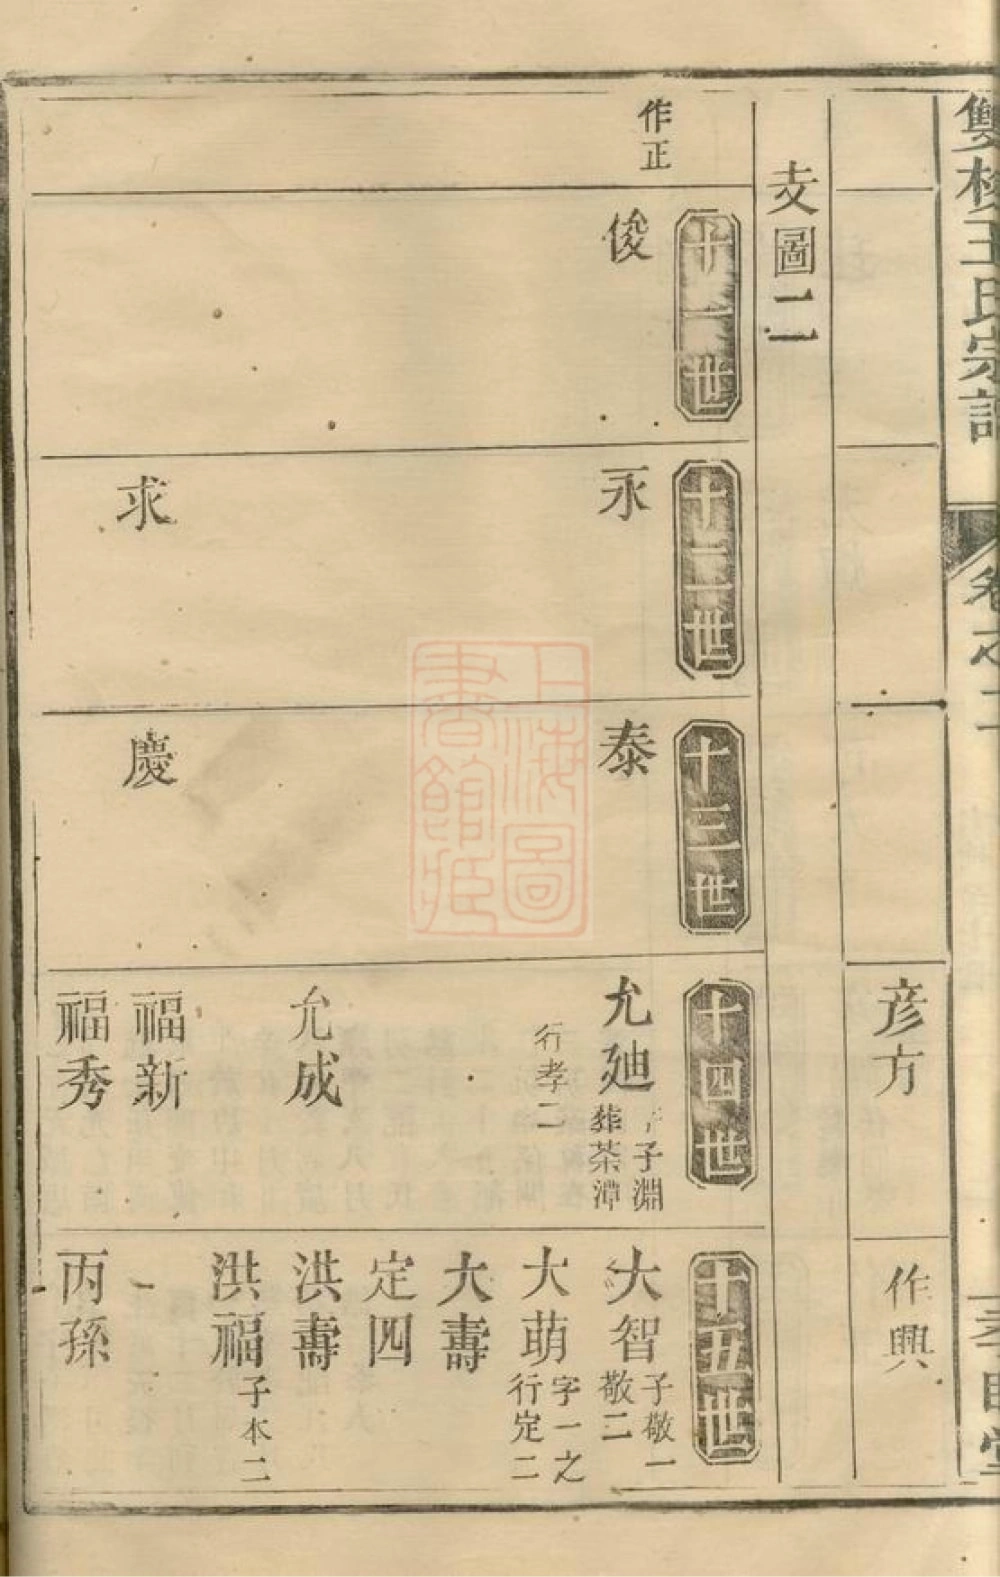 雙桂王氏宗譜
卷之二
彦方
作興
支圖二
作正
十一世
俊
十二世
永
求
十三世
泰
慶
十四世
允廸
子淵
葬茶潭
行孝二
允成
福新
福秀
十五世
大智
子敬一
敬二
大萌
字一之
行定二
大壽
定四
洪壽
洪福
子本二
丙孫
上海圖
書館藏